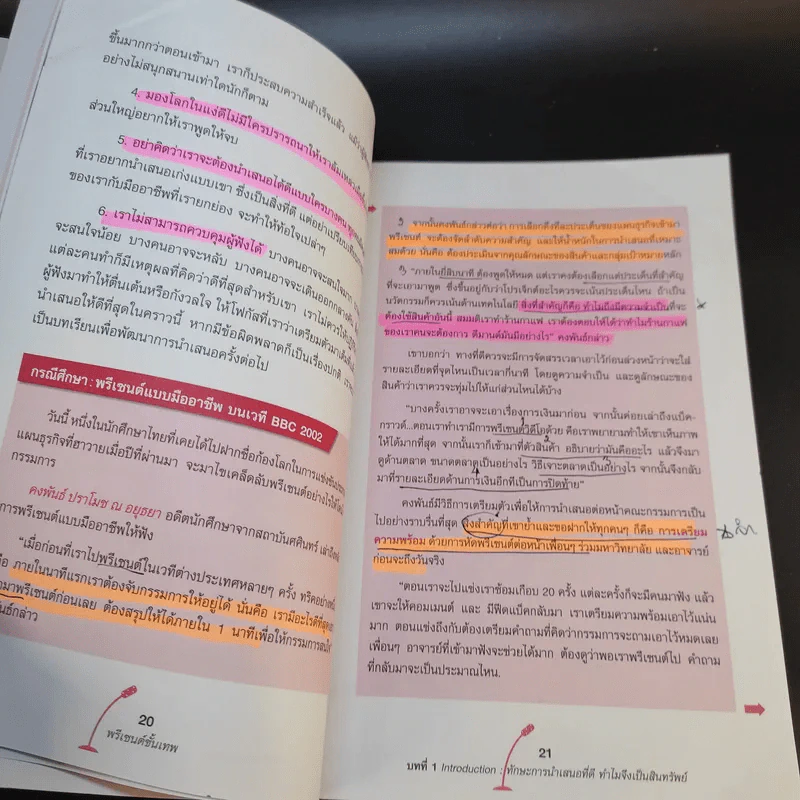 ขึ้นมากกว่าตอนเข้ามา เราก็ประสบความสำเร็จแล้ว แม้ว่าผู้ฟัง
อย่างไม่สนุกสนานเท่าใดนักก็ตาม
4. มองโลกในแง่ดีไม่มีใครปรารถนาให้เราล้มเหลว
ส่วนใหญ่อยากให้เราพูดให้จบ
5. อย่าคิดว่าเราจะต้องนำเสนอได้ดีแบบใครบางคน
ที่เราอยากนำเสนอเก่งแบบเขา ซึ่งเป็นสิ่งที่ดี แต่อย่าเปรียบเทียบ
ของเรากับมืออาชีพที่เรายกย่อง จะทำให้ท้อใจเปล่าๆ
6. เราไม่สามารถควบคุมผู้ฟังได้ บางคนอาจจะสนใจมาก
จะสนใจน้อย บางคนอาจจะหลับ บางคนอาจจะเดินออกกลางคัน
แต่ละคนทำก็มีเหตุผลที่คิดว่าดีที่สุดสำหรับเขา เราไม่ควรให้ปฏิกิริยา
ผู้ฟังมาทำให้ตื่นเต้นหรือกังวลใจ ให้โฟกัสที่เราว่าเตรียมตัวมาเต็มที่
นำเสนอให้ดีที่สุดในคราวนี้ หากมีข้อผิดพลาดก็เป็นเรื่องปกติ
เป็นบทเรียนเพื่อพัฒนาการนำเสนอครั้งต่อไป
กรณีศึกษา : พรีเซนต์แบบมืออาชีพ บนเวที BBC 2002
วันนี้ หนึ่งในนักศึกษาไทยที่เคยได้ไปฝากชื่อก้องโลกในการแข่งขันประกวด
แผนธุรกิจที่ฮาวายเมื่อปีที่ผ่านมา จะมาไขเคล็ดลับพรีเซนต์อย่างไรให้ได้ใจ
กรรมการ
คงพันธ์ ปราโมช ณ อยุธยา อดีตนักศึกษาจากสถาบันศศินทร์ เล่าถึง
การพรีเซนต์แบบมืออาชีพให้ฟัง
"เมื่อก่อนที่เราไปพรีเซนต์ในเวทีต่างประเทศหลายๆ ครั้ง ทริคอย่างหนึ่ง
คือ ภายในนาทีแรกเราต้องจับกรรมการให้อยู่ได้ นั่นคือ เรามีอะไรดีที่สุด
มาพรีเซนต์ก่อนเลย ต้องสรุปให้ได้ภายใน 1 นาทีเพื่อให้กรรมการสนใจ
พันธ์กล่าว
20
พรีเซนต์ขั้นเทพ
จากนั้นคงพันธ์กล่าวต่อว่า การเลือกดึงทีละประเด็นของแผนธุรกิจเข้ามา
พรีเซนท์ จะต้องจัดลำดับความสำคัญ และให้น้ำหนักในการนำเสนอที่เหมาะ
สมด้วย นั่นคือ ต้องประเมินจากคุณลักษณะของสินค้าและกลุ่มเป้าหมายหลัก
"ภายในยี่สิบนาที ต้องพูดให้หมด แต่เราคงต้องเลือกแต่ประเด็นที่สำคัญ
ที่จะเอามาพูด ซึ่งขึ้นอยู่กับว่าโปรเจ็กต์อะไรควรจะเน้นประเด็นไหน ถ้าเป็น
นวัตกรรมก็ควรเน้นด้านเทคโนโลยี สิ่งที่สำคัญก็คือ ทำไมถึงมีความจำเป็นที่จะ
ต้องใช้สินค้าอันนี้ สมมติเราทำร้านกาแฟ เราต้องตอบให้ได้ว่าทำไมร้านกาแฟ
ของเราคนจะต้องการ ดีมานด์มันมีอย่างไร" คงพันธ์กล่าว
เขาบอกว่า ทางที่ดีควรจะมีการจัดสรรเวลาเอาไว้ก่อนล่วงหน้าว่าจะใส่
รายละเอียดที่จุดไหนเป็นเวลากี่นาที โดยดูความจำเป็น และดูลักษณะของ
สินค้าว่าเราควรจะทุ่มไปให้แก่ส่วนไหนได้บ้าง
"บางครั้งเราอาจจะเอาเรื่องการเงินมาก่อน จากนั้นค่อยเล่าถึงแบ็ค-
กราวด์...ตอนเราทำเรามีการพรีเซนต์วิดีโอด้วย คือเราพยายามทำให้เขาเห็นภาพ
ให้ได้มากที่สุด จากนั้นเราก็เข้ามาที่ตัวสินค้า อธิบายว่ามันคืออะไร แล้วจึงมา
ดูด้านตลาด ขนาดตลาดเป็นอย่างไร วิธีเจาะตลาดเป็นอย่างไร จากนั้นจึงกลับ
มาที่รายละเอียดด้านการเงินอีกทีเป็นการปิดท้าย"
คงพันธ์มีวิธีการเตรียมตัวเพื่อให้การนำเสนอต่อหน้าคณะกรรมการเป็น
ไปอย่างราบรื่นที่สุด สิ่งสำคัญที่เขาย้ำและขอฝากให้ทุกคนๆ ก็คือ การเตรียม
ความพร้อม ด้วยการหัดพรีเซนต์ต่อหน้าเพื่อนๆ ร่วมมหาวิทยาลัย และอาจารย์
ก่อนจะถึงวันจริง
"ตอนเราจะไปแข่งเราซ้อมเกือบ 20 ครั้ง แต่ละครั้งก็จะมีคนมาฟัง แล้ว
เขาจะให้คอมเมนต์ และ มีฟีดแบ็คกลับมา เราเตรียมความพร้อมเอาไว้แน่น
มาก ตอนแข่งถึงกับต้องเตรียมคำถามที่คิดว่ากรรมการจะถามเอาไว้หมดเลย
เพื่อนๆ อาจารย์ที่เข้ามาฟังจะช่วยได้มาก ต้องดูว่าพอเราพรีเซนต์ไป คำถาม
ที่กลับมาจะเป็นประมาณไหน.
21
บทที่ 1 Introduction : ทักษะการนำเสนอที่ดี ทำไมจึงเป็นสินทรัพย์